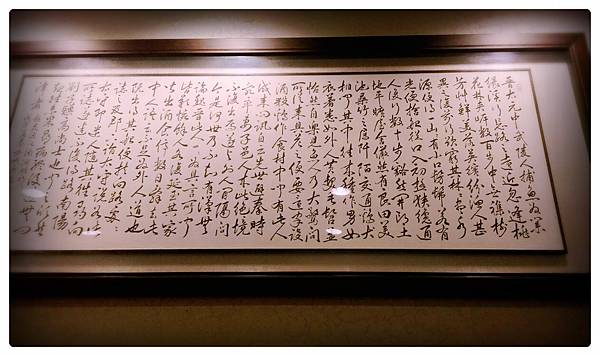 晉太元中武陵人捕魚為業
緣溪行忘路之遠近忽逢桃
花林夾岸數百步中無雜樹
芳草鮮美落英繽紛漁人甚
異之復前行欲窮其林林盡水
源便得一山山有小口彷彿若有
光便捨船從口入初極狹纔通
人復行數十步豁然開朗土
地平曠屋舍儼然有良田美
池桑竹之屬阡陌交通雞犬
相聞其中往來種作男女
衣著悉如外人黃髮垂髫並
怡然自樂見漁人乃大驚問
所從來具答之便要還家設
酒殺雞作食村中聞有此人
咸來問訊自云先世避秦時
亂率妻子邑人來此絕境
不復出焉遂與外人間隔問
今是何世乃不知有漢無
論魏晉此人一一為具言所聞
皆歎惋餘人各復延至其家
皆出酒食停數日辭去此
中人語云不足為外人道也
既出得其船便扶向路處處
誌之及郡下詣太守說如此
太守即遣人隨其往尋向
所誌遂迷不復得路南陽
劉子驥高尚士也聞之
津者